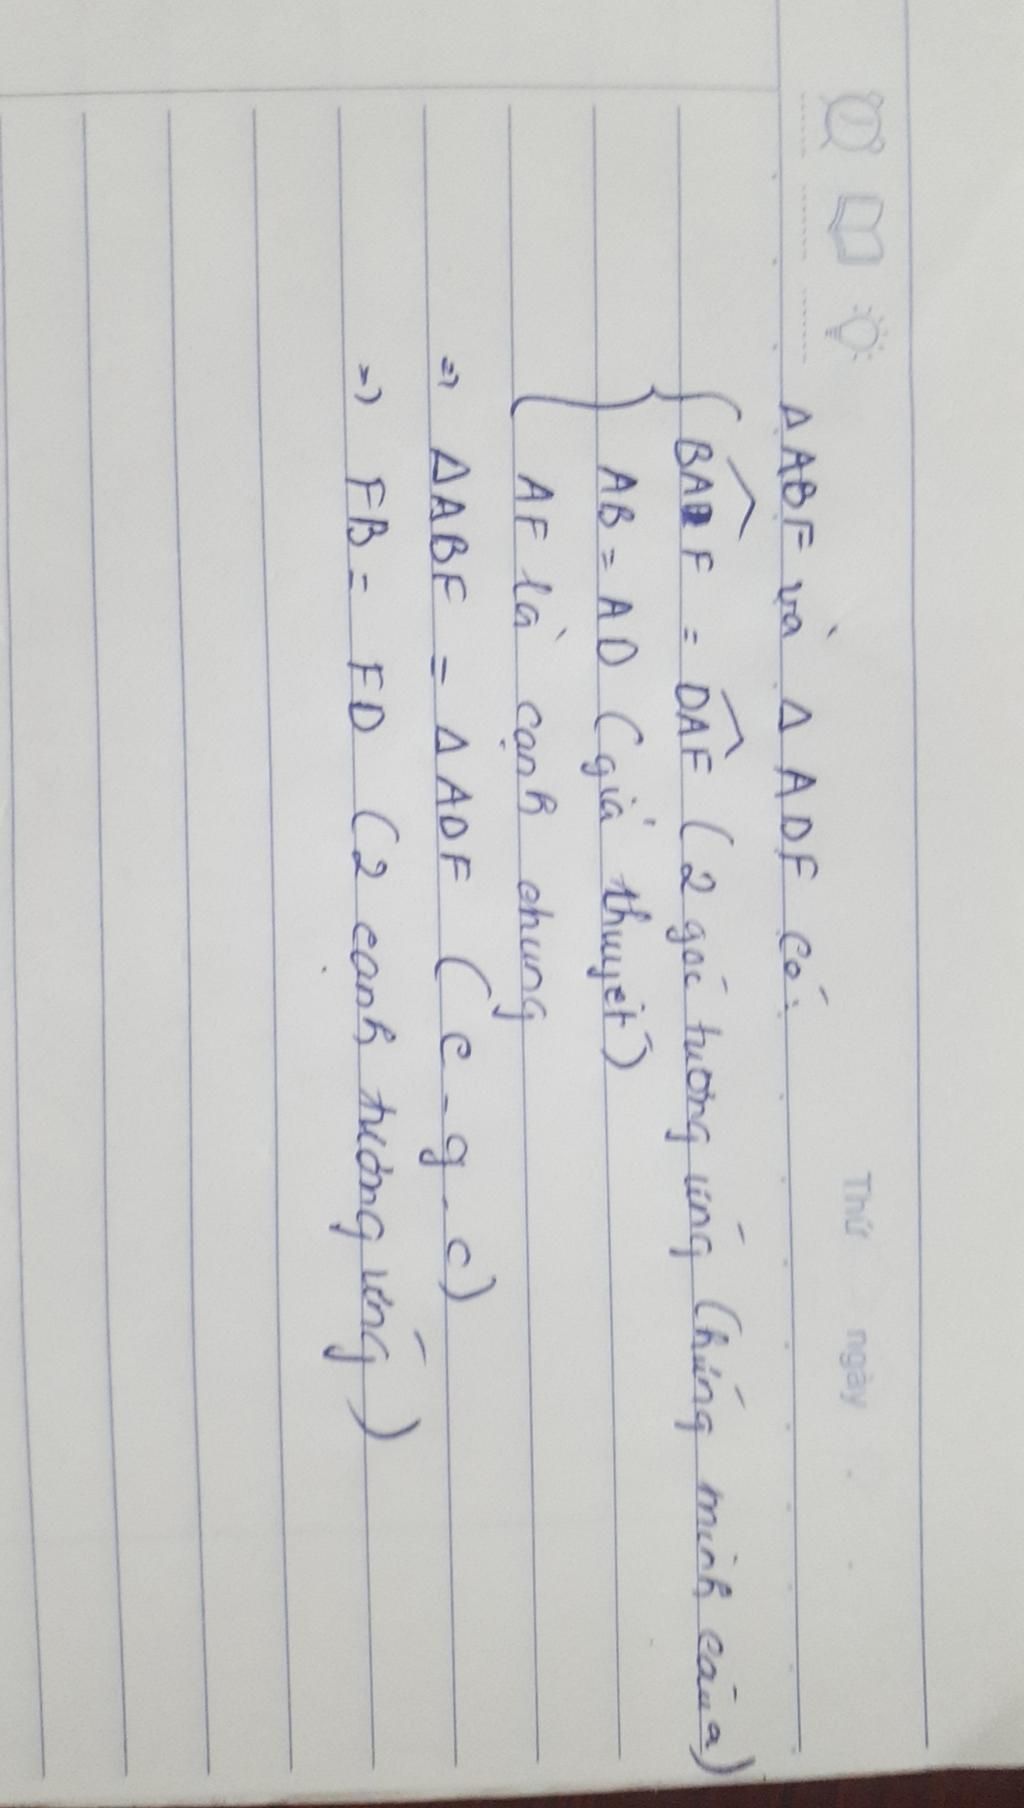 Thứ ngày
Δ ABF và Δ ADF có:
BAF = DAF (2 góc tương ứng (hứng minh câu a)
AB = AD (giả thuyết)
AF là cạnh chung
=> ΔABF = ΔADF (c-g-c)
=> FB = FD (2 cạnh tương ứng)